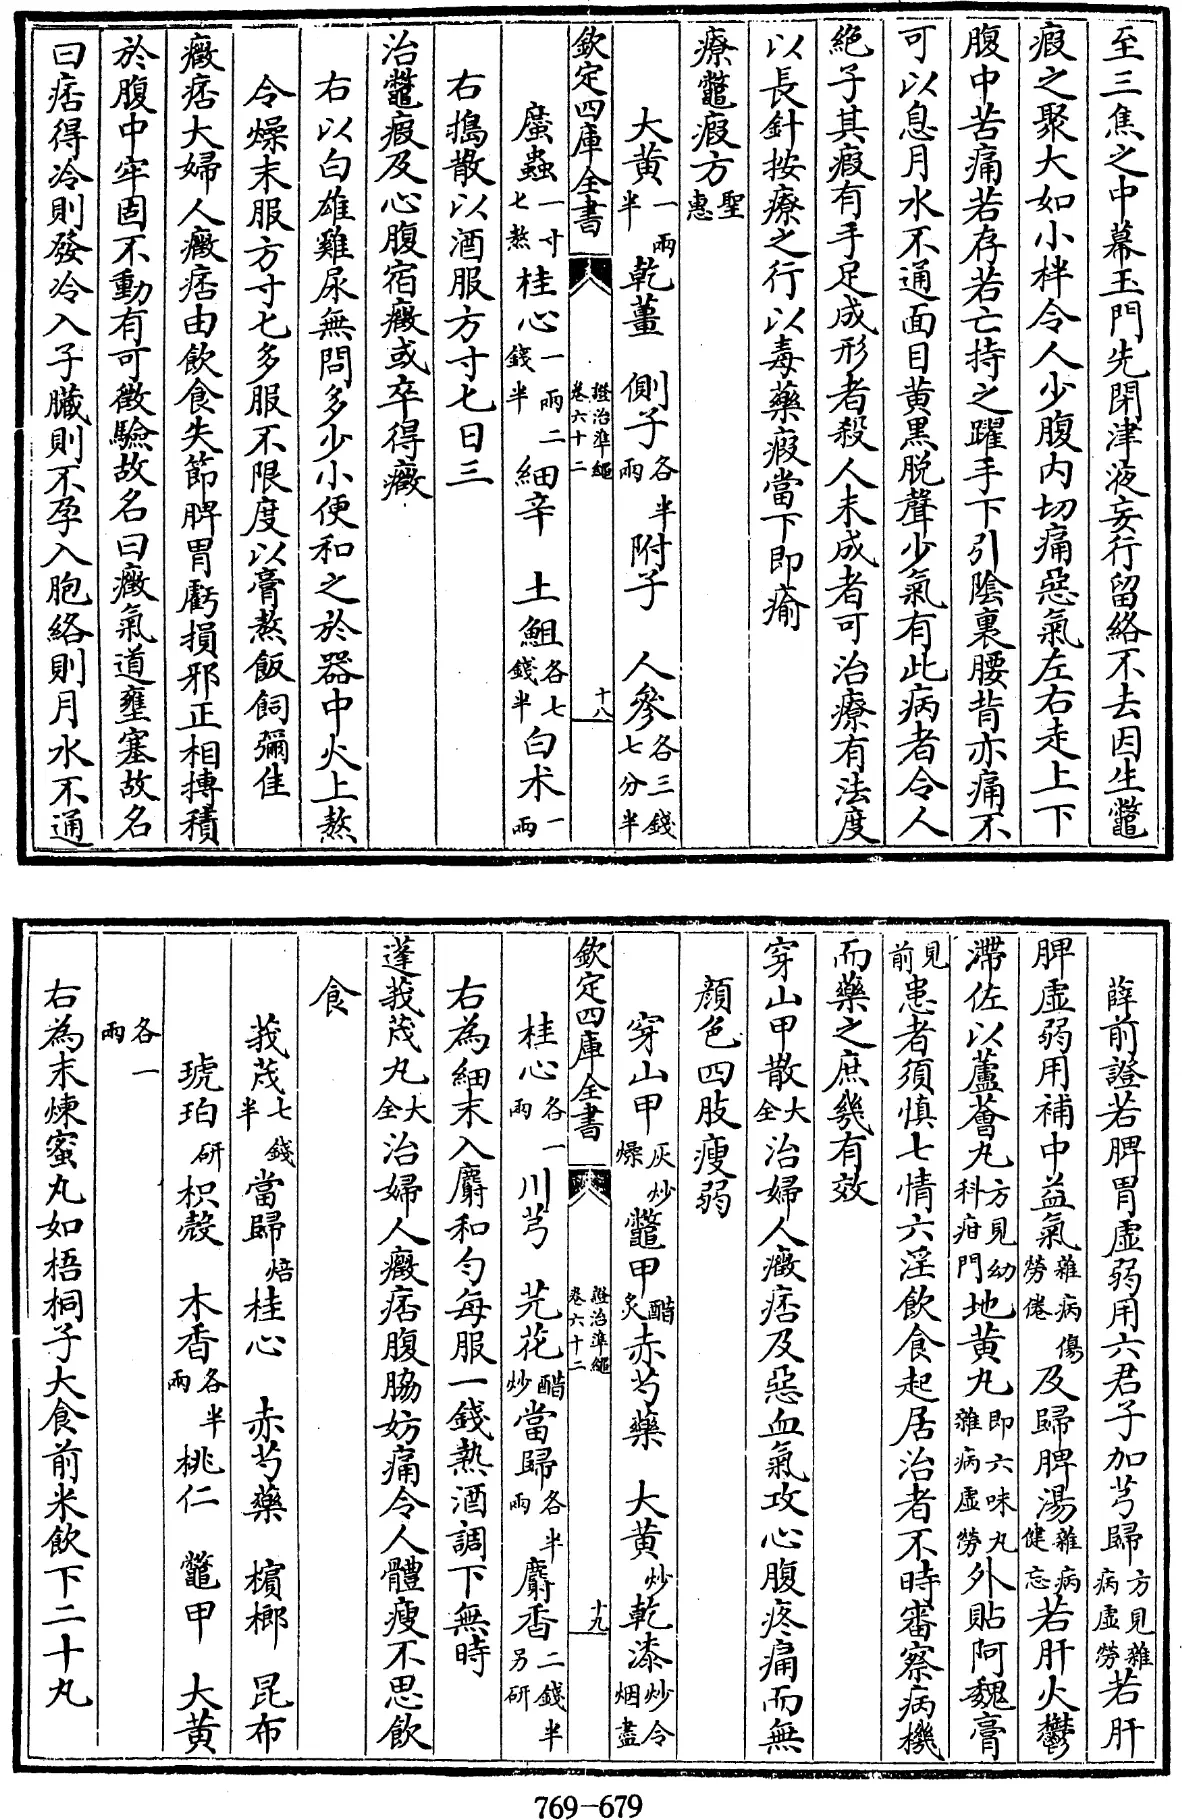 至三焦之中幕玉門先閉津液妄行留絡不去因生鼈
瘕之聚大如小柈令人少腹内切痛惡氣左右走上下
腹中苦痛若存若亡持之躍手下引陰裏腰背亦痛不
可以息月水不通面目黄黒脱聲少氣有此病者令人
絶子其瘕有手足成形者殺人未成者可治療有法度
以長針按療之行以毒藥瘕當下即瘉
療鼈瘕方聖惠
大黄一兩半乾薑 側子各半兩附子 人參各三錢七分半
欽定四庫全書 證治準繩卷六十二 十八
䗪蟲一寸七熬桂心一兩二錢半細辛 土䱉各七錢半白术一兩
右搗散以酒服方寸匕日三
治鼈瘕及心腹宿癥或卒得癥
右以白雄雞尿無問多少小便和之於器中火上熬
令燥末服方寸匕多服不限度以膏熬飯飼彌佳
癥痞大婦人癥痞由飲食失節脾胃虧損邪正相摶積
於腹中牢固不動有可徴驗故名曰癥氣道壅塞故名
曰痞得冷則發冷入子臟則不孕入胞絡則月水不通
薛前證若脾胃虛弱用六君子加芎歸方見雜病虛勞若肝
脾虛弱用補中益氣雜病傷勞倦及歸脾湯雜病健忘若肝火鬱
滯佐以蘆薈丸方見幼科疳門地黄丸即六味丸雜病虛勞外貼阿魏膏
見前患者須慎七情六淫飲食起居治者不時審察病機
而藥之庶幾有效
穿山甲散大全治婦人癥痞及惡血氣攻心腹疼痛而無
顔色四肢瘦弱
穿山甲灰炒燥鼈甲醋炙赤芍藥 大黄炒乾漆炒令烟盡
欽定四庫全書 證治準繩卷六十二 十九
桂心各一兩川芎 芫花醋炒當歸各半兩麝香二錢半另研
右為細末入麝和勻每服一錢熱酒調下無時
蓬莪茂丸大全治婦人癥痞腹脇妨痛令人體瘦不思飲
食
莪茂七錢半當歸焙桂心 赤芍藥 檳榔 昆布
琥珀研枳殻 木香各半兩桃仁 鼈甲 大黄
各一兩
右為末煉蜜丸如梧桐子大食前米飲下二十丸
769—679